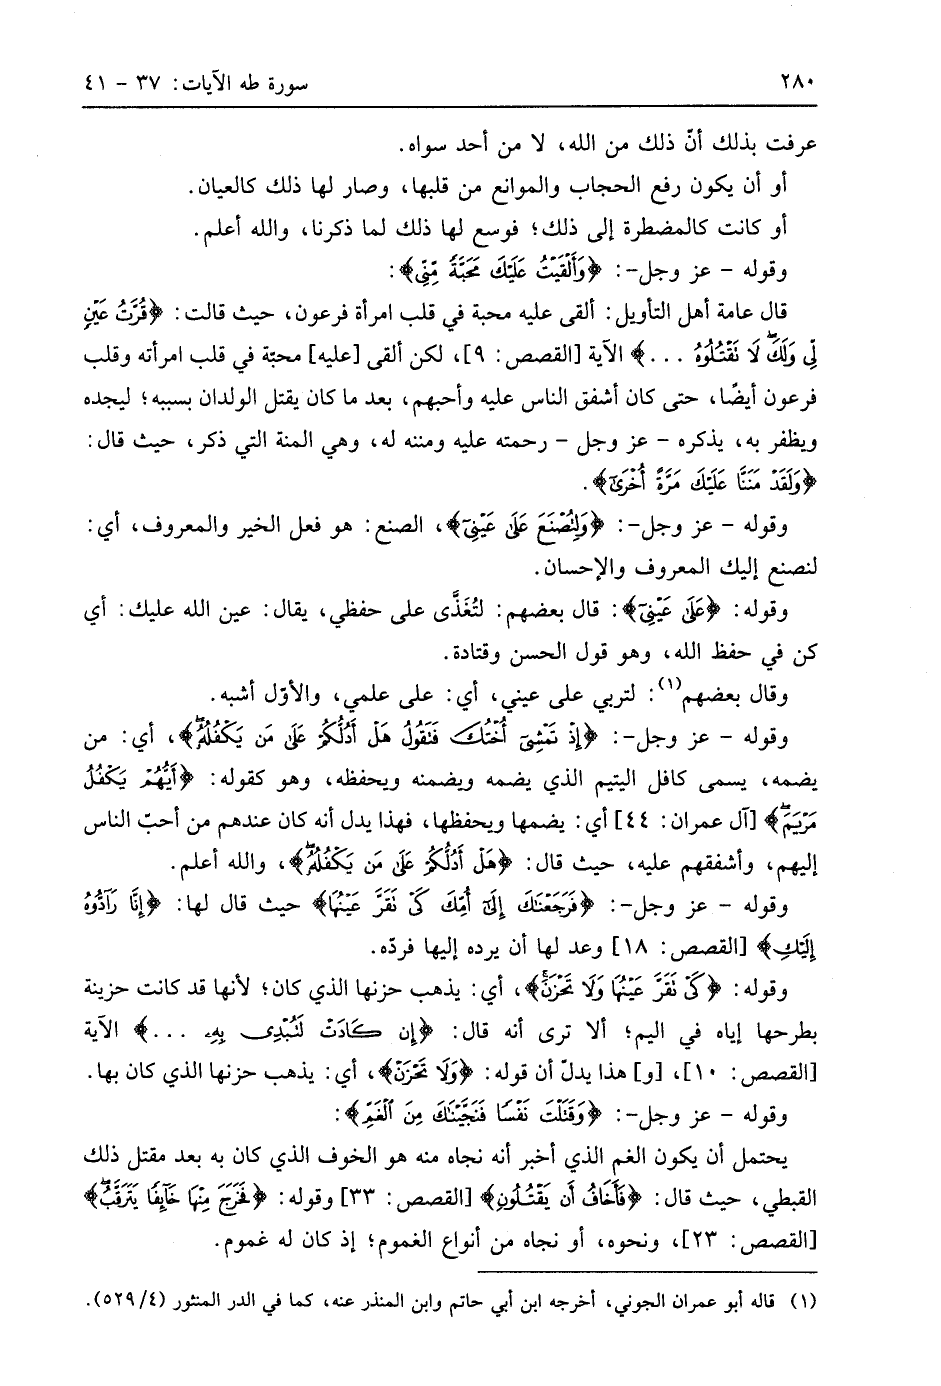 ٢٨٠ سورة طه الآيات: ٣٧ - ٤١
عرفت بذلك أنّ ذلك من الله، لا من أحد سواه.
أو أن يكون رفع الحجاب والموانع من قلبها، وصار لها ذلك كالعيان.
أو كانت كالمضطرة إلى ذلك؛ فوسع لها ذلك لما ذكرنا، والله أعلم.
وقوله - عز وجل-: ﴿وَأَلْقَيْتُ عَلَيْكَ مَحَبَّةً مِّنِّي﴾:
قال عامة أهل التأويل: ألقى عليه محبة في قلب امرأة فرعون، حيث قالت: ﴿قُرَّتُ عَيْنٍ
لِّي وَلَكَۖ لَا تَقْتُلُوهُ ...﴾ الآية [القصص: ٩]، لكن ألقى [عليه] محبّة في قلب امرأته وقلب
فرعون أيضًا، حتى كان أشفق الناس عليه وأحبهم، بعد ما كان يقتل الولدان بسببه؛ ليجده
ويظفر به، يذكره - عز وجل - رحمته عليه ومننه له، وهي المنة التي ذكر، حيث قال:
﴿وَلَقَدْ مَنَنَّا عَلَيْكَ مَرَّةً أُخْرَىٰٓ﴾.
وقوله - عز وجل-: ﴿وَلِتُصْنَعَ عَلَىٰ عَيْنِيٓ﴾، الصنع: هو فعل الخير والمعروف، أي:
لنصنع إليك المعروف والإحسان.
وقوله: ﴿عَلَىٰ عَيْنِيٓ﴾: قال بعضهم: لتُغَذَّى على حفظي، يقال: عين الله عليك: أي
كن في حفظ الله، وهو قول الحسن وقتادة.
وقال بعضهم(١): لتربي على عيني، أي: على علمي، والأوّل أشبه.
وقوله - عز وجل-: ﴿إِذْ تَمْشِيٓ أُخْتُكَ فَتَقُولُ هَلْ أَدُلُّكُمْ عَلَىٰ مَن يَكْفُلُهُۥۖ﴾، أي: من
يضمه، يسمى كافل اليتيم الذي يضمه ويضمنه ويحفظه، وهو كقوله: ﴿أَيُّهُمْ يَكْفُلُ
مَرْيَمَۖ﴾ [آل عمران: ٤٤] أي: يضمها ويحفظها، فهذا يدل أنه كان عندهم من أحبّ الناس
إليهم، وأشفقهم عليه، حيث قال: ﴿هَلْ أَدُلُّكُمْ عَلَىٰ مَن يَكْفُلُهُۥۖ﴾، والله أعلم.
وقوله - عز وجل-: ﴿فَرَجَعْنَٰكَ إِلَىٰٓ أُمِّكَ كَيْ تَقَرَّ عَيْنُهَا﴾ حيث قال لها: ﴿إِنَّا رَآدُّوهُ
إِلَيْكِ﴾ [القصص: ١٨] وعد لها أن يرده إليها فردّه.
وقوله: ﴿كَيْ تَقَرَّ عَيْنُهَا وَلَا تَحْزَنَۚ﴾، أي: يذهب حزنها الذي كان؛ لأنها قد كانت حزينة
بطرحها إياه في اليم؛ ألا ترى أنه قال: ﴿إِن كَادَتْ لَتُبْدِي بِهِۦ ...﴾ الآية
[القصص: ١٠]، [و] هذا يدلّ أن قوله: ﴿وَلَا تَحْزَنَۚ﴾، أي: يذهب حزنها الذي كان بها.
وقوله - عز وجل-: ﴿وَقَتَلْتَ نَفْسًا فَنَجَّيْنَٰكَ مِنَ ٱلْغَمِّ﴾:
يحتمل أن يكون الغم الذي أخبر أنه نجاه منه هو الخوف الذي كان به بعد مقتل ذلك
القبطي، حيث قال: ﴿فَأَخَافُ أَن يَقْتُلُونِ﴾ [القصص: ٣٣] وقوله: ﴿فَخَرَجَ مِنْهَا خَآئِفًا يَتَرَقَّبُۖ﴾
[القصص: ٢٣]، ونحوه، أو نجاه من أنواع الغموم؛ إذ كان له غموم.
(١) قاله أبو عمران الجوني، أخرجه ابن أبي حاتم وابن المنذر عنه، كما في الدر المنثور (٤/ ٥٢٩).